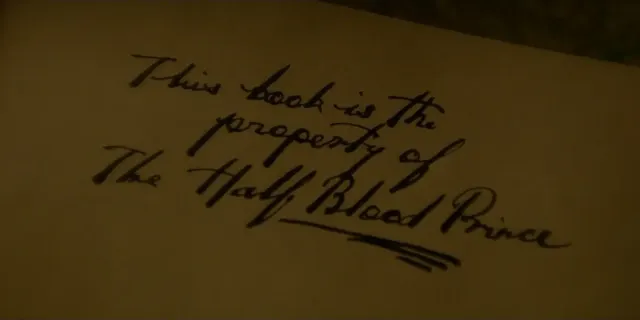 This book is the
property of
The Half Blood Prince